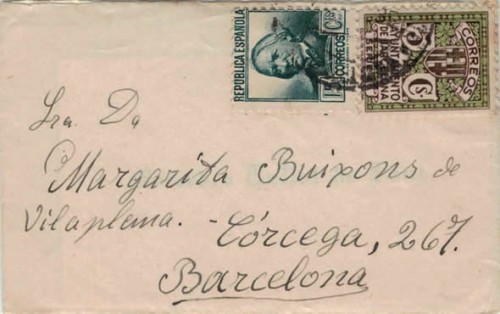 REPUBLICA ESPAÑOLA
15 Cts
CORREOS
CORREOS
5 Cs
AYUNTAMIENTO
DE BARCELONA
Sra. Da
Margarita Buixons de
Vilaplana. - Córcega, 267.
Barcelona